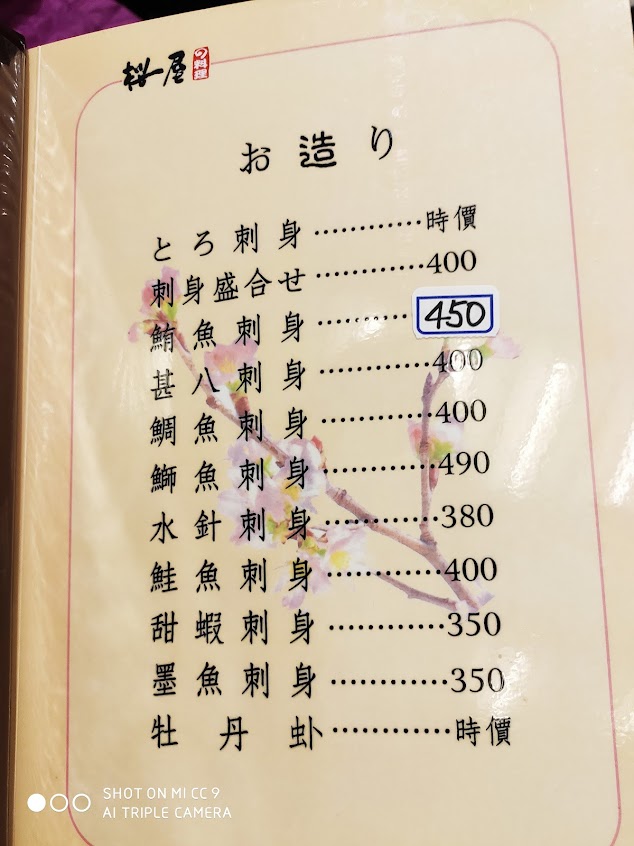 の料理
お造り
とろ刺身…………時價
刺身盛合せ…………400
鮪魚刺身…………450
甚八刺身…………400
鯛魚刺身…………400
鰤魚刺身…………490
水針刺身…………380
鮭魚刺身…………400
甜蝦刺身…………350
墨魚刺身…………350
牡丹蝦…………時價
SHOT ON MI CC 9
AI TRIPLE CAMERA